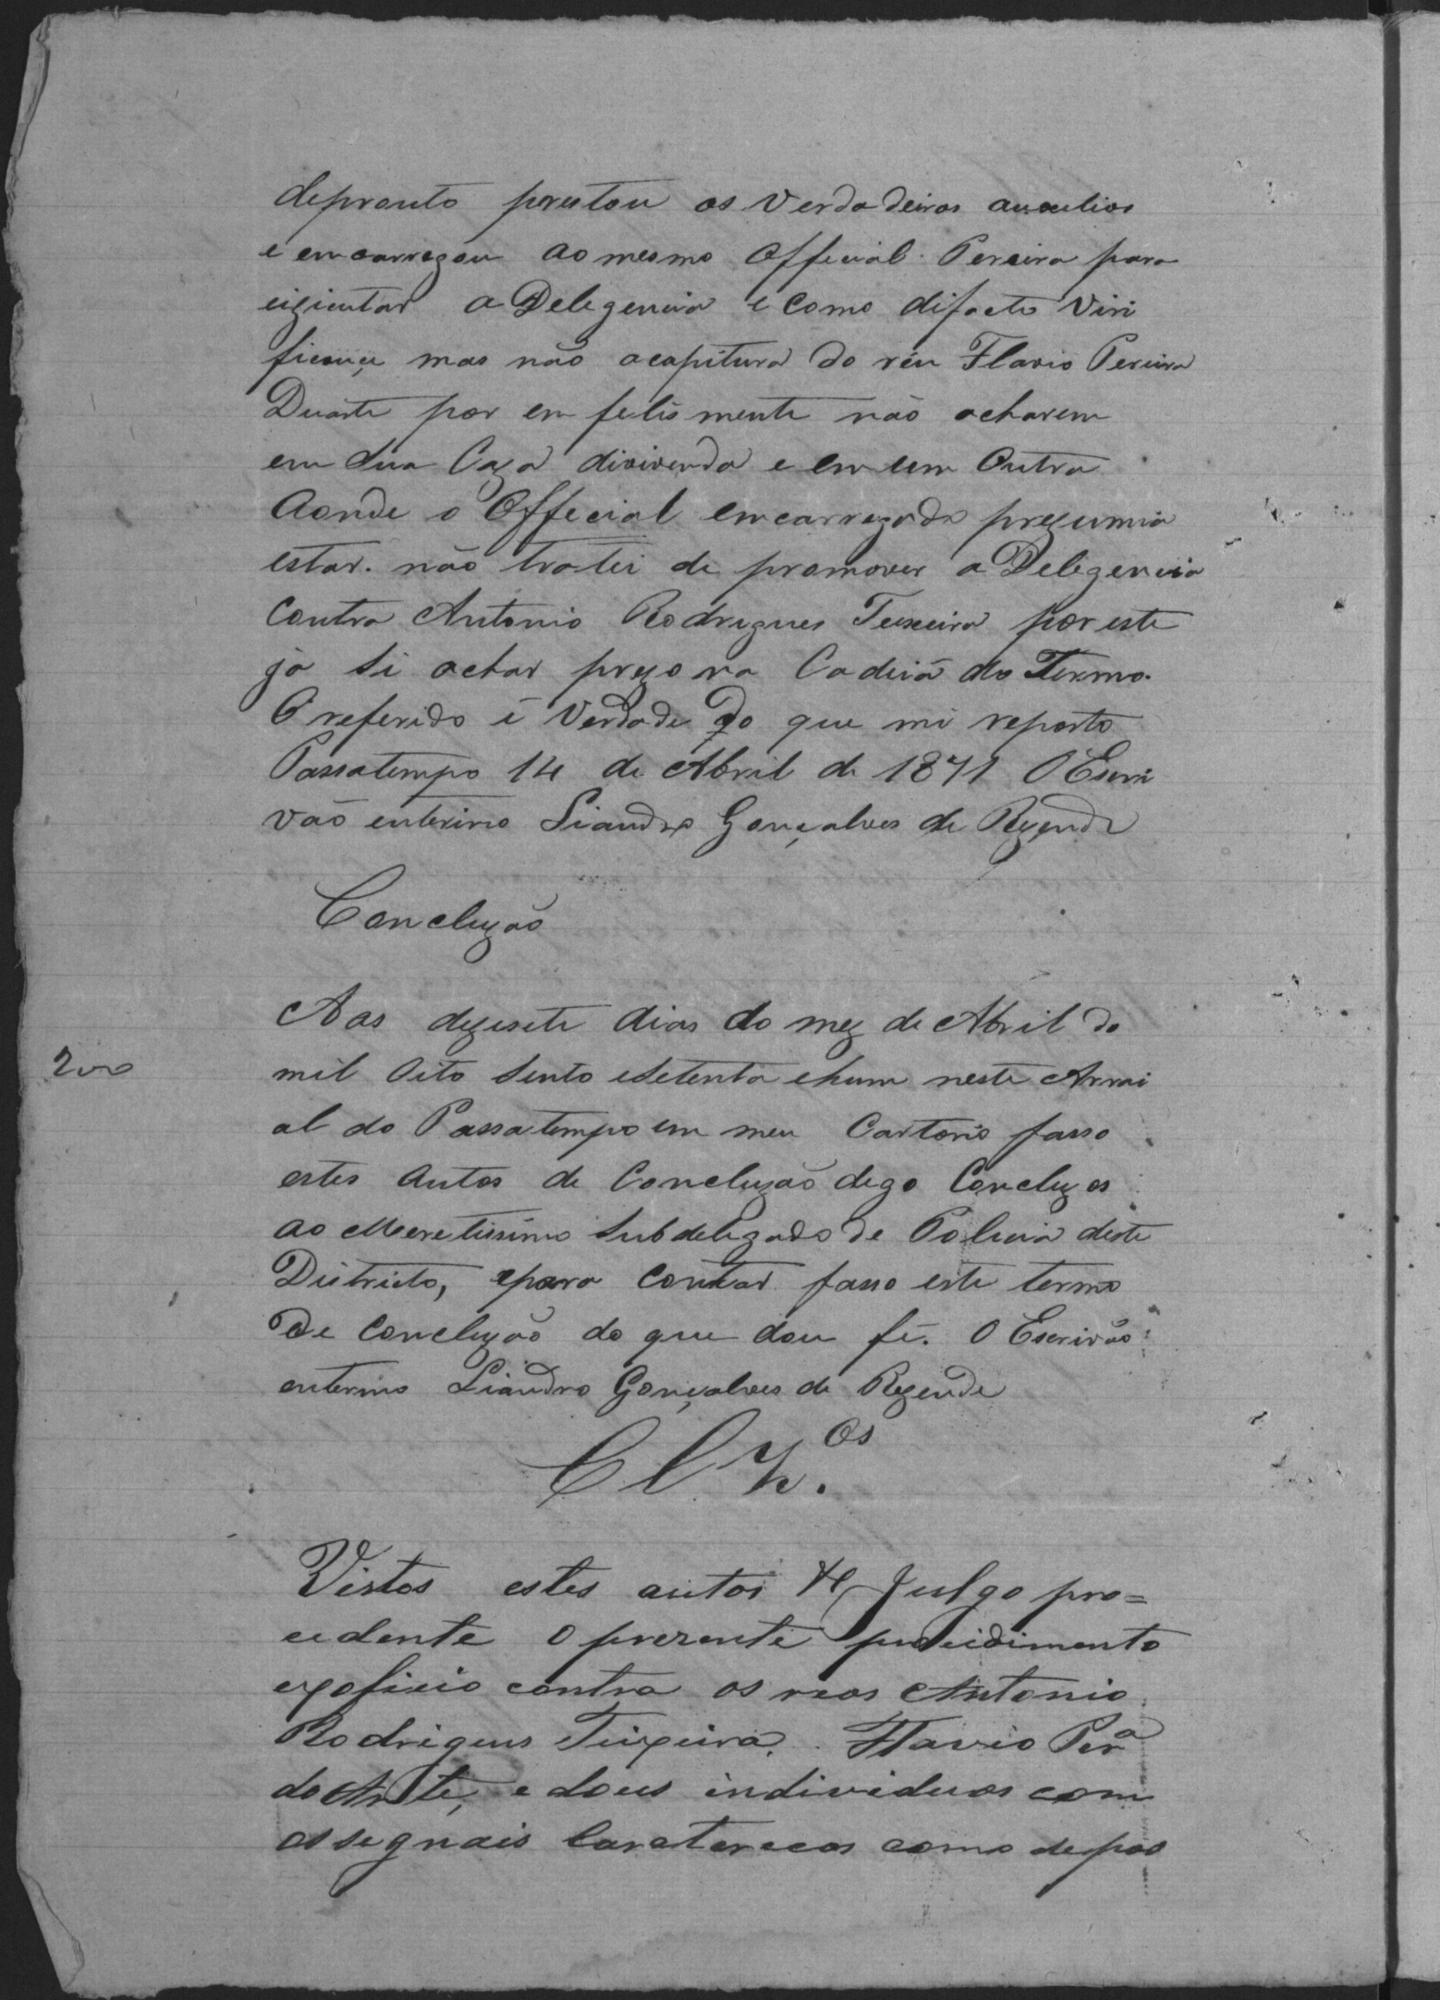 depronto prestou os Verdadeiros auxilios
e encarregou ao mesmo Official Pereira para
eizicutar a Delegencia e como difacto Viri
ficou, mas não acapitura do réu Flavio Pereira
Duarte por enfelismente não acharem
em Sua Caza divivenda e em um Outra
Aonde o Official encarregado prezumia
estar. não tratei de promover a Delegencia
Contra Antonio Rodrigues Teixeira por este
já Si achar prezo na Cadeia do Termo.
O referido é Verdade do que mi reporto
Passatempo 14 de Abril de 1871 O Escri
vão enterino Liandro Gonçalves de Rezende
Concluzão
Aos dezesete dias do mez de Abril de
200
mil Oito Sento eSetenta ehum neste Arrai
al do Passatempo em meu Cartorio fasso
estes Autos de Concluzão dego Concluzos
ao Meretissimo Subdelegado de Policia deste
Districto, epara Constar fasso este termo
De Concluzão do que dou fé. O Escrivão
enterino Liandro Gonçalves de Rezende
Clz.os
Vistos estes autos & Julgo pro=
cedente o prezente procidimento
exoficio contra os reos Antonio
Rodrigues Teixeira, Flavio Per.a
doArte, e dous individuos com
ossegnais Caraterecos como depoo